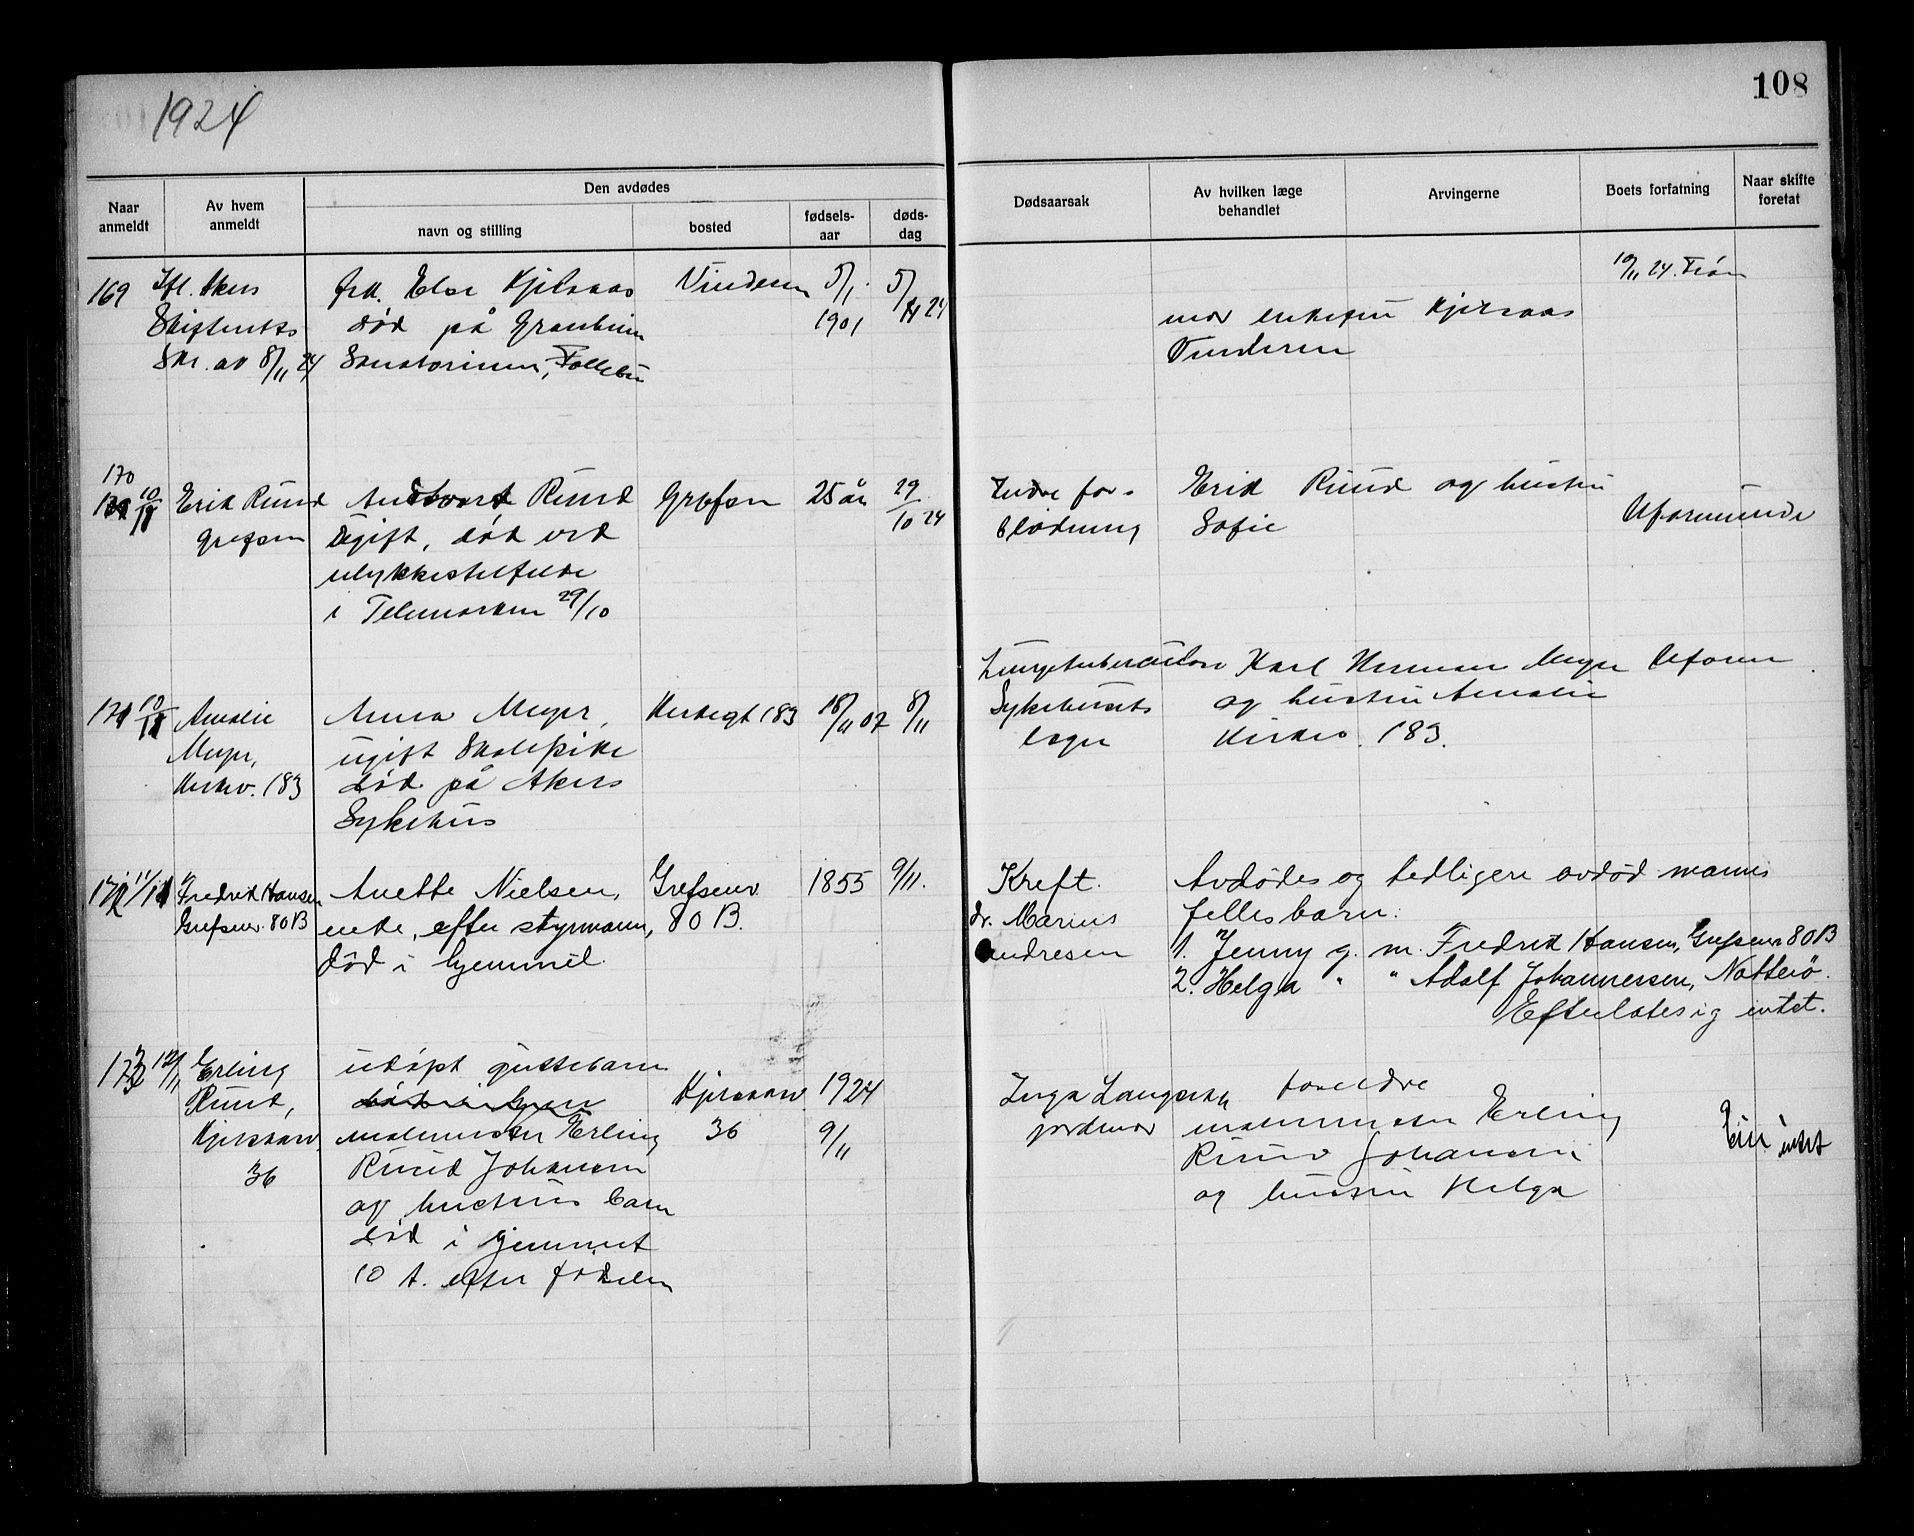 1924
108
Naar anmeldt
Av hvem anmeldt
Den avdødes
navn og stilling
bosted
fødsels-aar
døds-dag
Dødsaarsak
Av hvilken læge behandlet
Arvingerne
Boets forfatning
Naar skifte foretat
169
Ifl. Akers
Skifteretts
Skr. av 8/11 24
frk. Elsa Kjelsaas
død på Granheim
Sanatorium, Follebu
Vinderen
5/1
1901
5/11 24
mor enkefru Kjelsaas
Vinderen
10/11 24.
170
10/11
Erik Ruud
Grefsen
Ruud
Ugift, død ved
ulykkestilfelde
i Telemarken 29/10
Grefsen
25 år
29/10 24
Indre for-
blødning
Erik Ruud og hustru
Sofie
Uformuende
171
10/11
Amalie
Meyer,
Kirkev. 183
Anna Meyer,
ugift Skolepike
død på Akers
Sykehus
Kirkegt 183
18/11 07
8/11
Lungetuberculose
Sykehusets
læger
Karl Herman Meyer
og hustru Amalie
Kirkev. 183.
Uformu
172
11/11
Fredrik Hansen
Grefsenv. 80B
Anette Nielsen,
enke, efter styrmann,
død i hjemmet.
Grefsenv.
80 B.
1855
9/11.
Kreft.
dr. Marius
Andresen
Avdødes og tidligere avdød manns
fellesbarn:
1. Jenny g. m. Fredrik Hansen, Grefsenv 80B
2. Helga " " Adolf Johannessen, Nøtterø.
Efterlates ig intet.
173
12/11
Erling
Ruud,
Kjelsaasv.
36
udøpt guttebarn
malermester Erling
Ruud Johansen
og hustrus barn
død i hjemmet
10 t. efter fødselen
Kjelsaasv.
36
1924
9/11
Inga
jordmor
foreldre
malermester Erling
Ruud Johansen
og hustru Helga
Eier intet